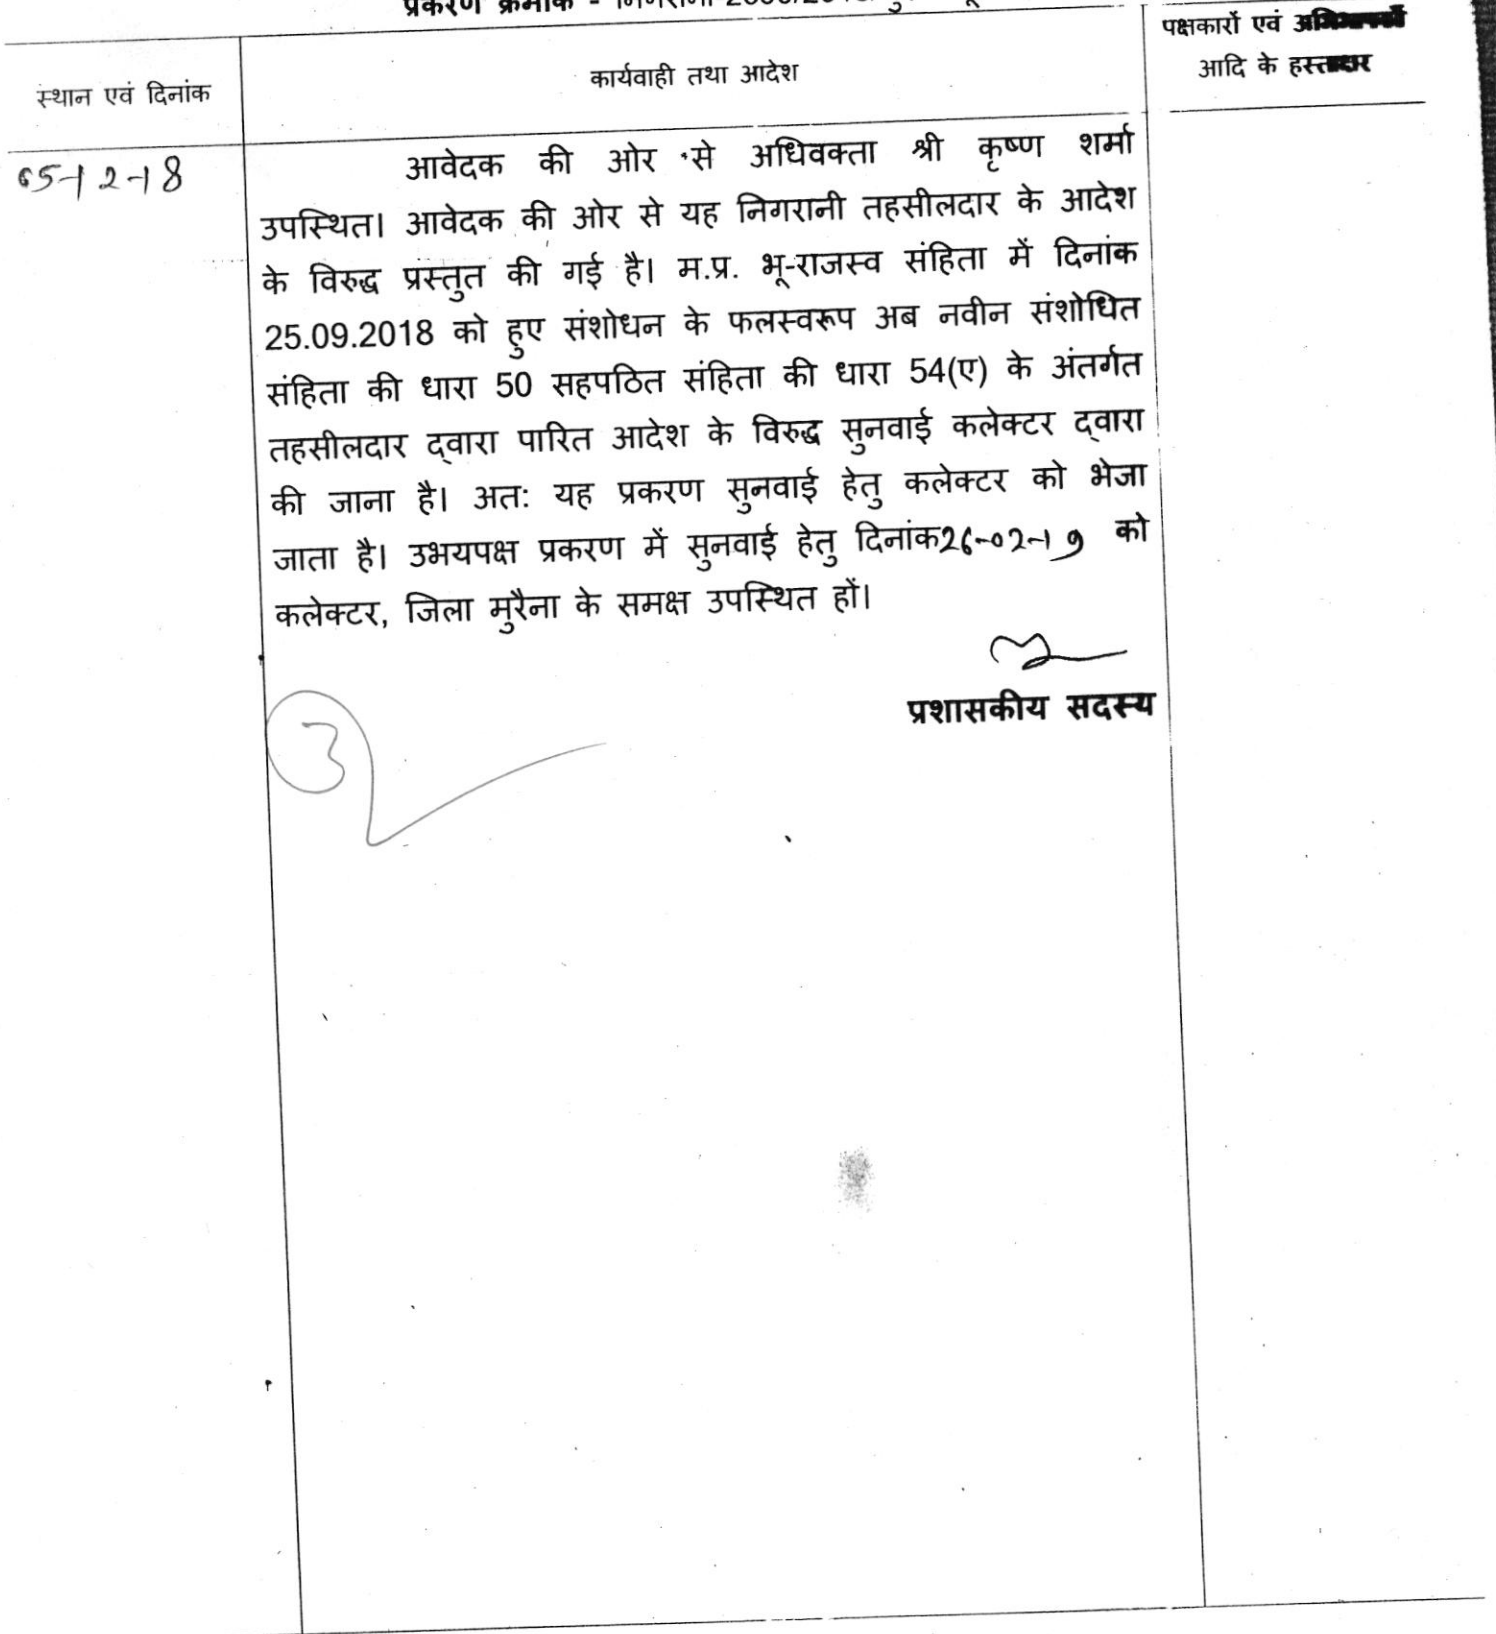 प्रकरण क्रमांक -
पक्षकारों एवं
आदि के हस्ताक्षर
स्थान एवं दिनांक
कार्यवाही तथा आदेश
05-12-18
आवेदक की ओर से अधिवक्ता श्री कृष्ण शर्मा
उपस्थित। आवेदक की ओर से यह निगरानी तहसीलदार के आदेश
के विरुद्ध प्रस्तुत की गई है। म.प्र. भू-राजस्व संहिता में दिनांक
25.09.2018 को हुए संशोधन के फलस्वरूप अब नवीन संशोधित
संहिता की धारा 50 सहपठित संहिता की धारा 54(ए) के अंतर्गत
तहसीलदार द्वारा पारित आदेश के विरुद्ध सुनवाई कलेक्टर द्वारा
की जाना है। अतः यह प्रकरण सुनवाई हेतु कलेक्टर को भेजा
जाता है। उभयपक्ष प्रकरण में सुनवाई हेतु दिनांक 26-02-19 को
कलेक्टर, जिला मुरैना के समक्ष उपस्थित हों।
प्रशासकीय सदस्य
3